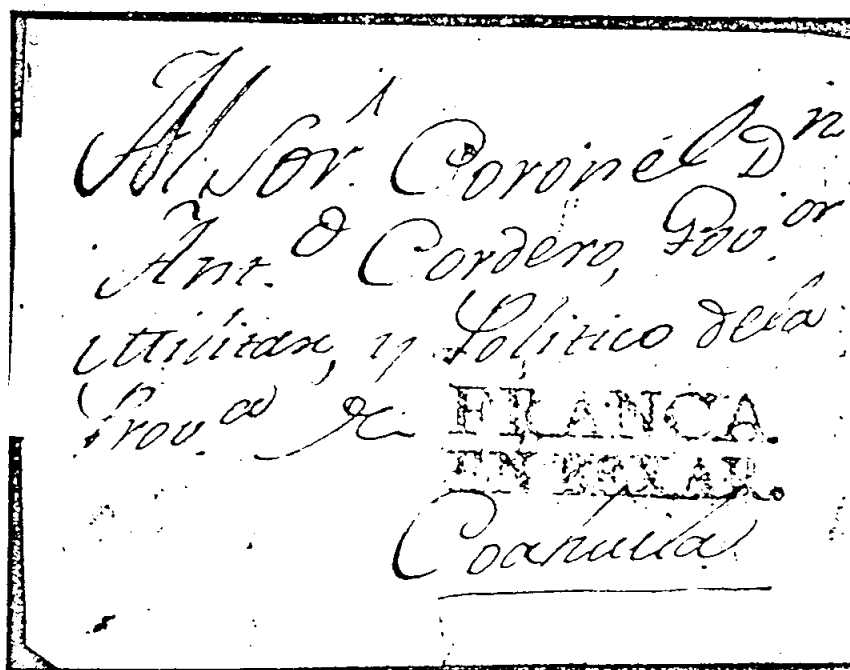 Al Sor. Coronel Dn
Ant.o Cordero, Gov.or
Militar, y Politico dela
Prov.ca de FRANCA.
EN
Coahuila